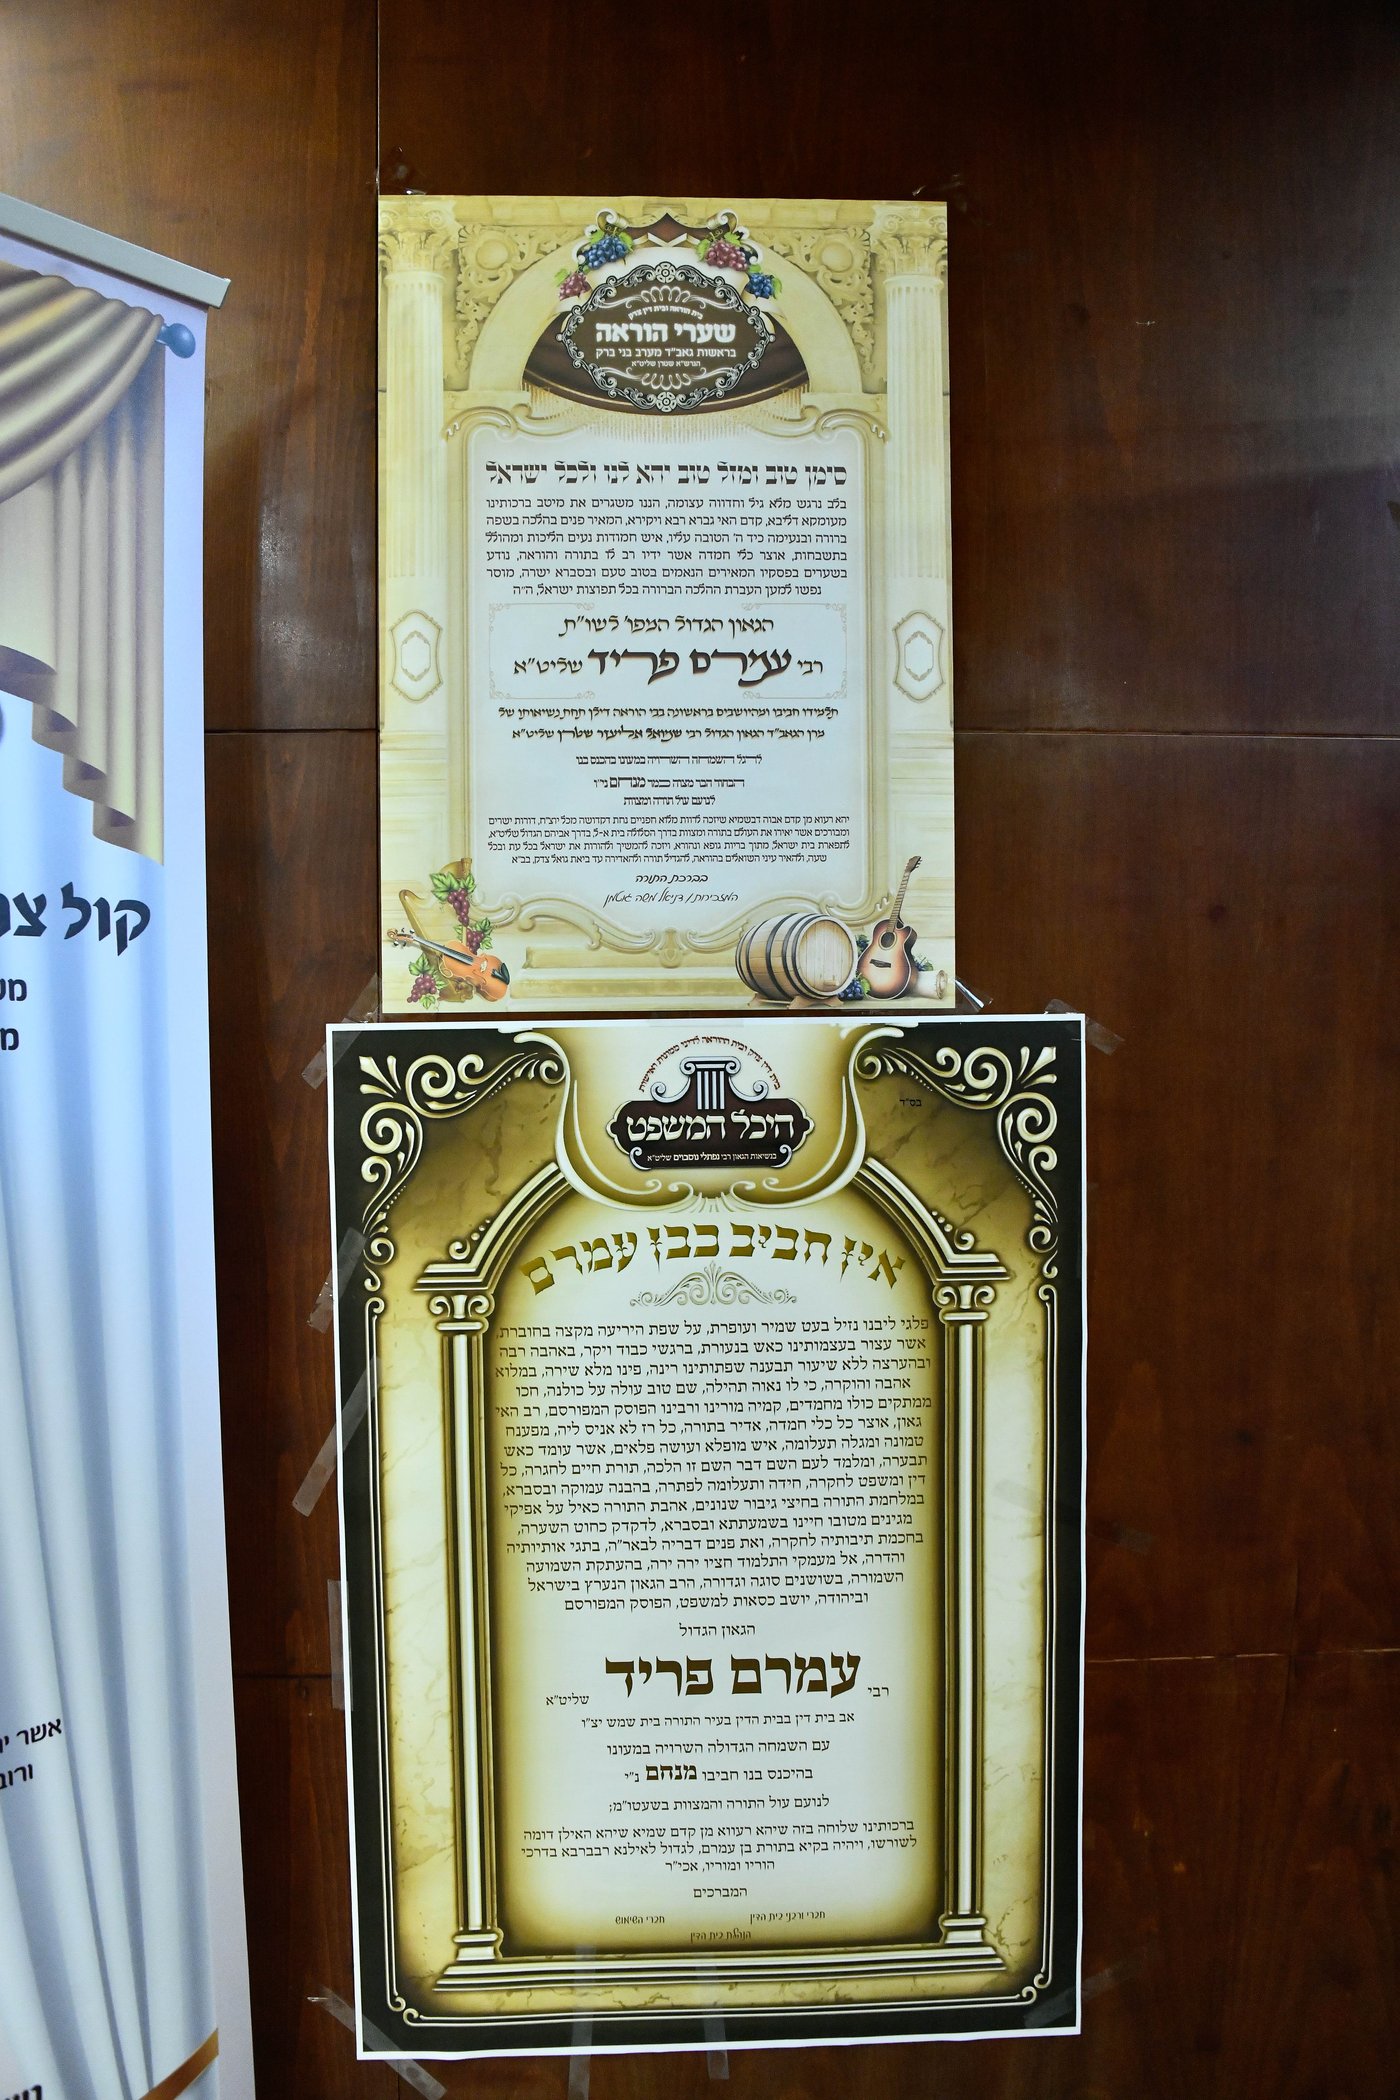 בית הוראה ובית דין צדק
שערי הוראה
בראשות גאב"ד מערב בני ברק
הגרש"א שטרן שליט"א
סימן טוב ומזל טוב יהא לנו ולכל ישראל
בלב נרגש מלא גיל וחדווה עצומה, הננו משגרים את מיטב ברכותינו
מעומקא דליבא, קדם האי גברא רבא ויקירא, המאיר פנים בהלכה בשפה
ברורה ובנעימה כיד ה' הטובה עליו, איש חמודות נעים הליכות ומהולל
בתשבחות, אוצר כלי חמדה אשר ידיו רב לו בתורה והוראה, נודע
בשערים בפסקיו המאירים הנאמים בטוב טעם ובסברא ישרה, מוסר
נפשו למען העברת ההלכה הברורה בכל תפוצות ישראל, ה"ה
הגאון הגדול המפו' לשו"ת
רבי עמרם פריד שליט"א
תלמידו חביבו ומהיושבים בראשונה בבי הוראה דילן תחת נשיאותו של
מרן הגאב"ד הגאון הגדול רבי שמואל אליעזר שטרן שליט"א
לרגל השמחה השרויה במעונו בהכנס בנו
הבחור הבר מצוה כמר מנחם ני"ו
לנועם עול תורה ומצוות
יהא רעוא מן קדם אבוה דבשמיא שיזכה לרוות מלא חפניים נחת דקדושה מכל יוצ"ח, דורות ישרים
ומבורכים אשר יאירו את העולם בתורה ומצוות בדרך הסלולה בית א-ל, בדרך אביהם הגדול שליט"א,
לתפארת בית ישראל, מתוך בריות גופא ונהורא, ויזכה להמשיך ולהורות את ישראל בכל עת ובכל
שעה, ולהאיר עיני השואלים בהוראה, להגדיל תורה ולהאדירה עד ביאת גואל צדק, בב"א
בברכת התורה
המזכירות / דניאל משה גוטמן
קול
אשר
בית דין צדק ובית ההוראה לדיני ממונות ואישות
היכל המשפט
בנשיאות הגאון רבי נפתלי נוסבוים שליט"א
בס"ד
אין חביב כבן עמרם
פלגי ליבנו נזיל בעט שמיר ועופרת, על שפת היריעה מקצה בחוברת,
אשר עצור בעצמותינו כאש בנעורת, ברגשי כבוד ויקר, באהבה רבה
ובהערצה ללא שיעור תבענה שפתותינו רינה, פינו מלא שירה, במלוא
אהבה והוקרה, כי לו נאוה תהילה, שם טוב עולה על כולנה, חכו
ממתקים כולו מחמדים, קמיה מורינו ורבינו הפוסק המפורסם, רב האי
גאון, אוצר כל כלי חמדה, אדיר בתורה, כל רז לא אניס ליה, מפענח
טמונה ומגלה תעלומה, איש מופלא ועושה פלאים, אשר עומד כאש
תבערה, ומלמד לעם השם דבר השם זו הלכה, תורת חיים לחגרה, כל
דין ומשפט לחקרה, חידה ותעלומה לפתרה, בהבנה עמוקה ובסברא,
במלחמת התורה בחיצי גיבור שנונים, אהבת התורה כאיל על אפיקי
מגינים מטובו חיינו בשמעתתא ובסברא, לדקדק כחוט השערה,
בחכמת תיבותיה לחקרה, ואת פנים דבריה לבאר"ה, בתגי אותיותיה
והדרה, אל מעמקי התלמוד חציו ירה ירה, בהעתקת השמועה
השמורה, בשושנים סוגה וגדורה, הרב הגאון הנערץ בישראל
וביהודה, יושב כסאות למשפט, הפוסק המפורסם
הגאון הגדול
רבי עמרם פריד שליט"א
אב בית דין בבית הדין בעיר התורה בית שמש יצ"ו
עם השמחה הגדולה השרויה במעונו
בהיכנס בנו חביבו מנחם נ"י
לנועם עול התורה והמצוות בשעטו"מ;
ברכותינו שלוחה בזה שיהא רעווא מן קדם שמיא שיהא האילן דומה
לשורשו, ויהיה בקיא בתורת בן עמרם, לגדול לאילנא רברברבא בדרכי
הוריו ומוריו, אכי"ר
המברכים
חברי ורבני בית הדין
חברי השימוש
הנהלת בית הדין